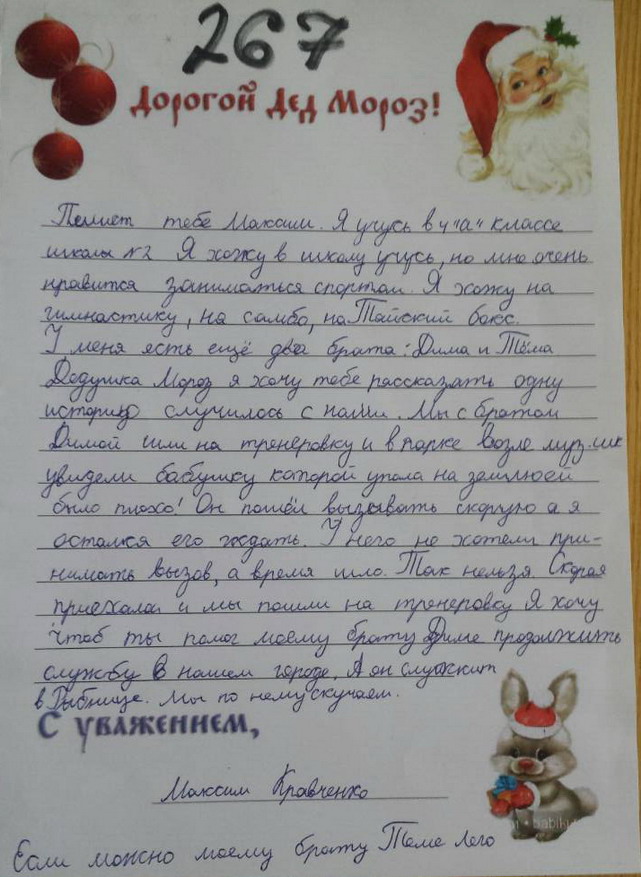 267
Дорогой Дед Мороз!
Пишет тебе Максим. Я учусь в 4 "а" классе
школы №2 Я хожу в школу учусь, но мне очень
нравится заниматься спортом. Я хожу на
гимнастику, на самбо, на Тайский бокс.
У меня есть ещё два брата: Дима и Тёма
Дедушка Мороз я хочу тебе рассказать одну
историю случилось с нами. Мы с братом
Димой шли на тренеровку и в парке возле муз.шк
увидели бабушку которой упала на землю ей
было плохо! Он пошёл вызывать скорую а я
остался его ждать. У него не хотели при-
нимать вызов, а время шло. Так нельзя. Скорая
приехала и мы пошли на тренеровку Я хочу
чтоб ты помог моему брату Диме продолжить
службу в нашем городе. А он служит
в Рыбнице. Мы по нему скучаем.
С уважением,
Максим Кравченко
Если можно моему брату Теме Лего